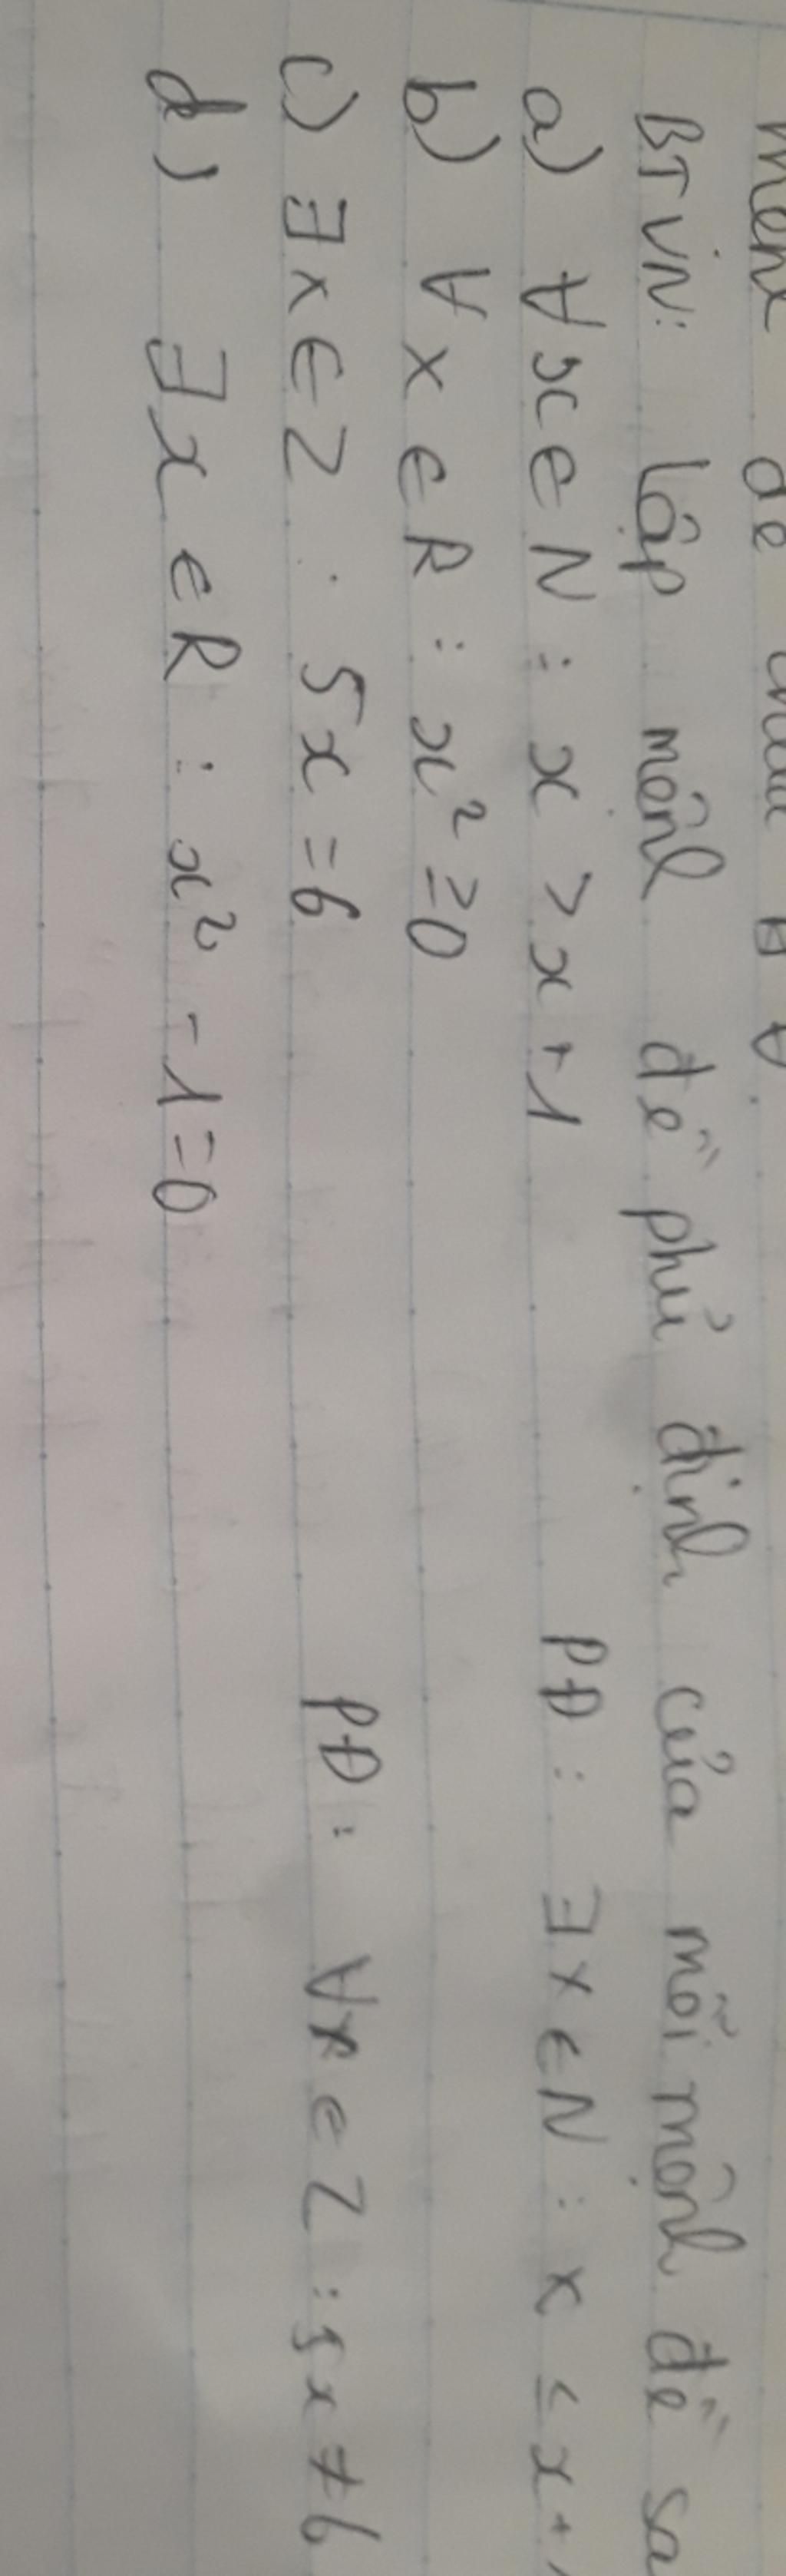 mệnh đề chứa ∃ ∀.
BTVN: lập mệnh đề phủ định của mỗi mệnh đề sa
a) ∀x∈N : x > x + 1 PĐ : ∃x ∈ N : x ≤ x + 1
b) ∀x ∈ R : x² ≥ 0
c) ∃x ∈ Z : 5x = 6 PĐ : ∀x ∈ Z : 5x ≠ 6
d) ∃x ∈ R : x² - 1 = 0